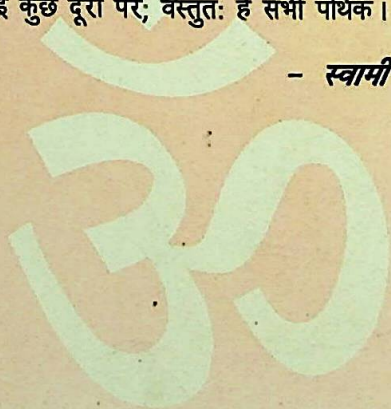 कुछ दूरी पर; वस्तुतः हैं सभी पथिक।
– स्वामी
ॐ